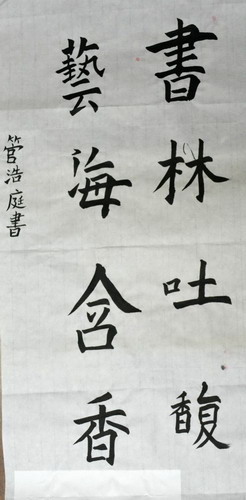 書林吐馥
藝海含香
管浩庭書